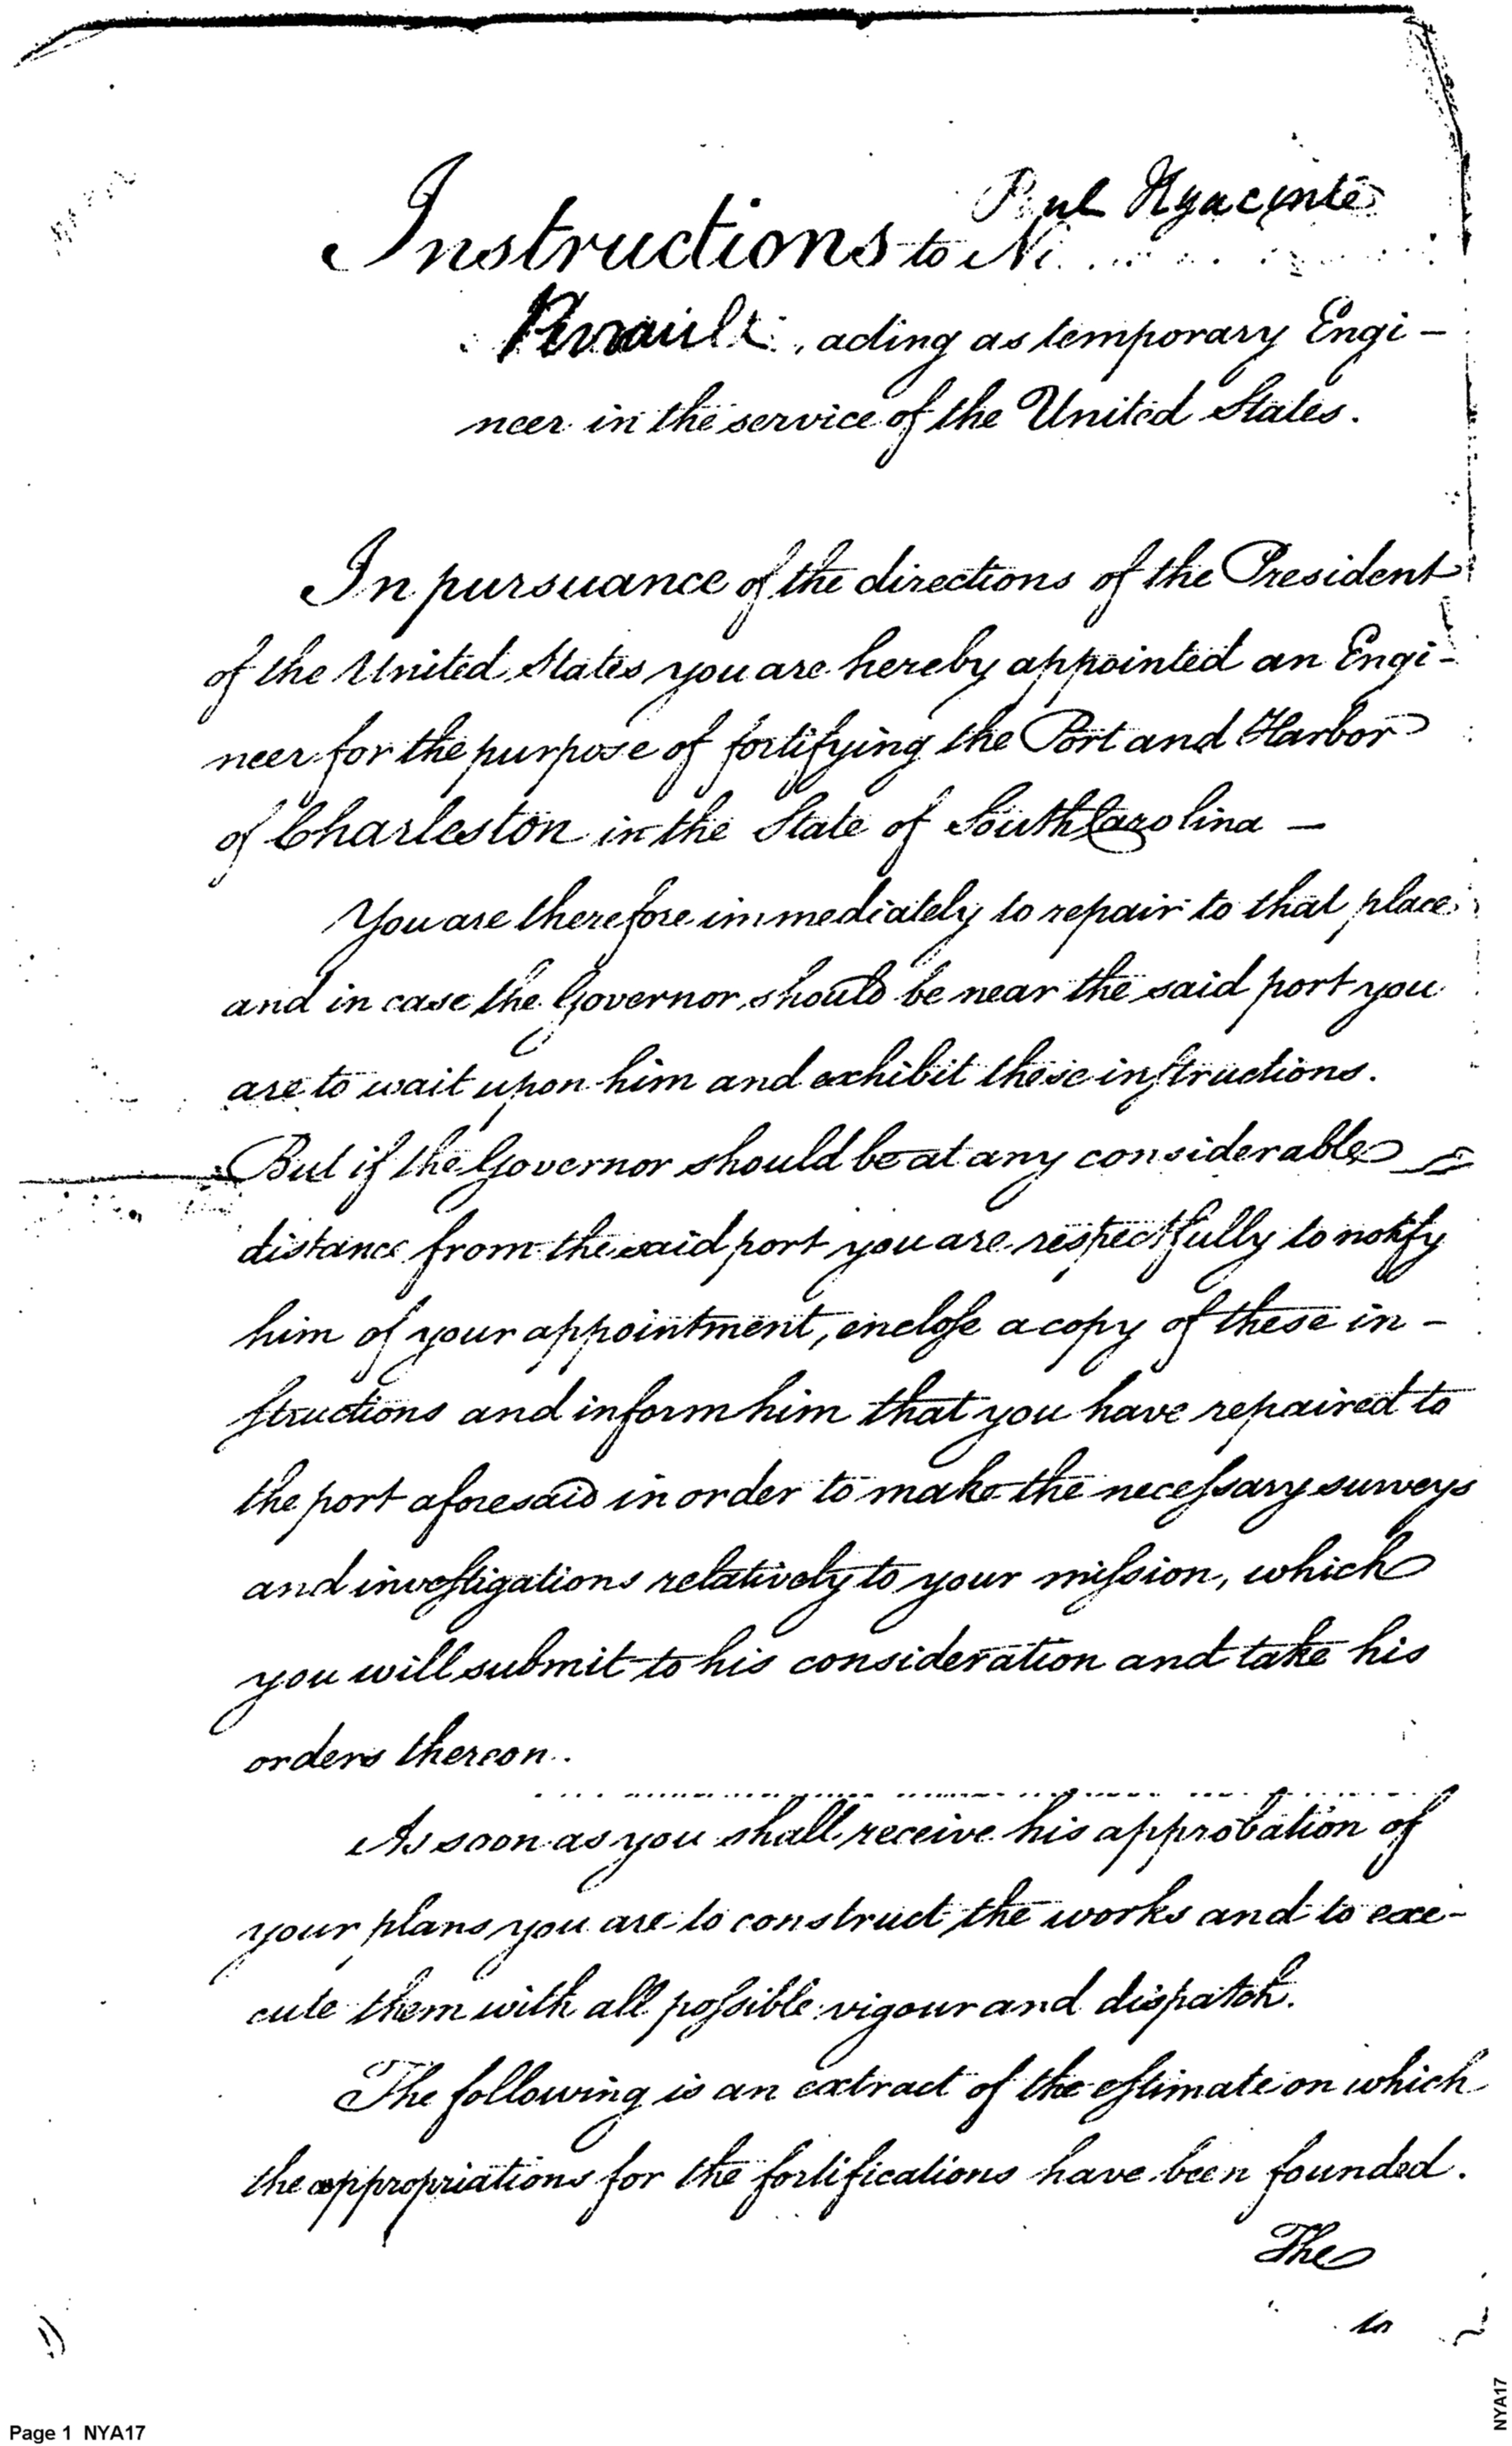 Paul Hyacinte
Instructions to
Perrault, acting as temporary Engi-
neer in the service of the United States.
In pursuance of the directions of the President
of the United States you are hereby appointed an Engi-
neer for the purpose of fortifying the Port and Harbor
of Charleston in the State of South Carolina —
You are therefore immediately to repair to that place
and in case the Governor should be near the said port you
are to wait upon him and exhibit these inſtructions.
But if the Governor should be at any considerable
distance from the said port you are respectfully to notify
him of your appointment, encloſe a copy of these in-
ſtructions and inform him that you have repaired to
the port aforesaid in order to make the neceſsary surveys
and inveſtigations relatively to your miſsion, which
you will submit to his consideration and take his
orders thereon.
As soon as you shall receive his approbation of
your plans you are to construct the works and to exe-
cute them with all poſsible vigour and dispatch.
The following is an extract of the eſtimate on which
the appropriations for the fortifications have been founded.
The
Page 1 NYA17
NYA17